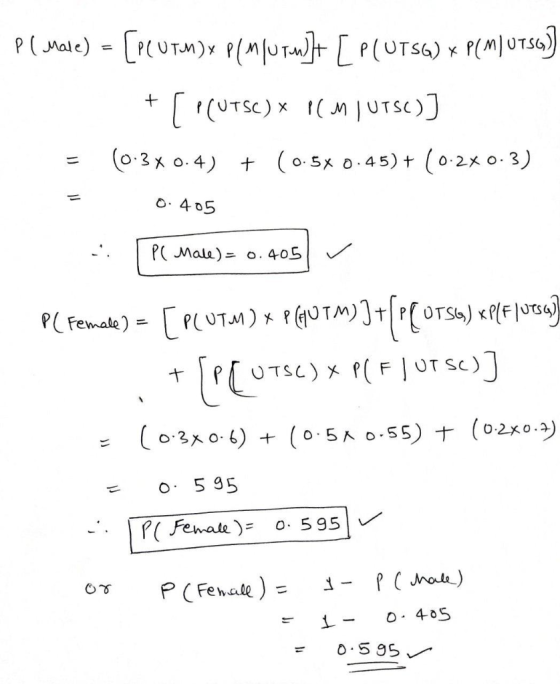 P(Male) = [P(UTM)x P(M|UTM]+ [ P(UTSG) x P(M|UTSG)]
+ [ P(UTSC)x P(M|UTSC)]
= (0.3x0.4) + (0.5x0.45)+(0.2x0.3)
= 0.405
∴ P(Male)= 0.405 ✓
P(Female) = [P(UTM) x P(F|UTM)]+[P[UTSG) xP(F|UTSG)]
+ [P[UTSC) x P(F|UTSC)]
= (0.3x0.6) + (0.5x0.55) + (0.2x0.7)
= 0.595
∴ P(Female)= 0.595 ✓
or P(Female) = 1- P(Male)
= 1- 0.405
= 0.595 ✓